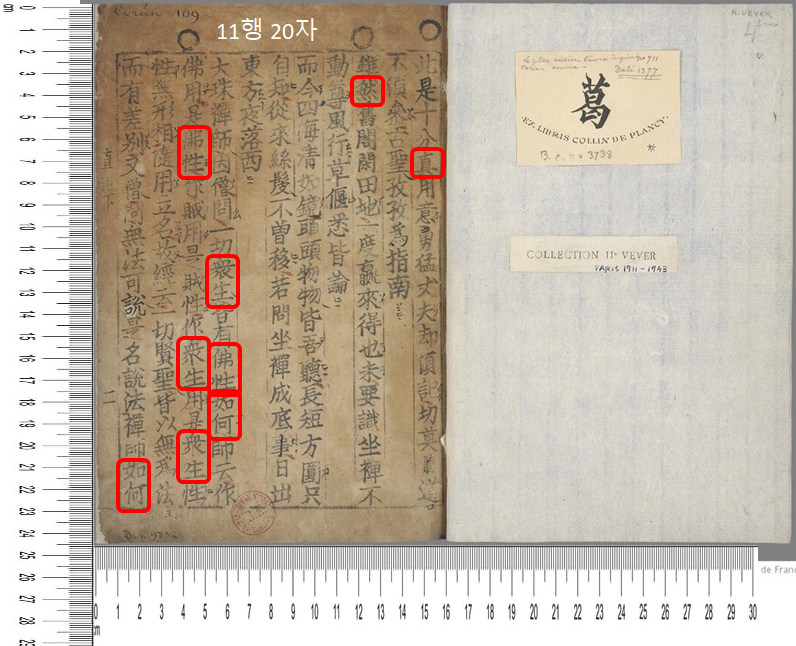 Coréen 109
11행 20자
此是十分直用意勇猛丈夫却須切莫
不須參古聖孜孜爲指南
雖然舊閣閑田地一度贏來得也未要識坐禪不
動尊風行草偃悉皆論
而今四海淸如鏡頭頭物物皆吾聽長短方圓只
自知從來絲髮不曾移若問坐禪成底事日出
東方夜落西
大珠禪師因僧問一切衆生皆有佛性如何師云作
佛用是佛性作賊用是賊性作衆生用是衆生性
性無形相隨用立名故經云一切賢聖皆以無爲法
而有差別又僧問無法可說是名說法禪師如何
直 下 二
H. VEVER
Daté 1377
葛
EX-LIBRIS COLLIN DE PLANCY.
B. c. no 3738
COLLECTION Hi VEVER
PARIS 1911-1943
de Franc
0 1 2 3 4 5 6 7 8 9 10 11 12 13 14 15 16 17 18 19 20 21 22 23 24 25
cm
0 1 2 3 4 5 6 7 8 9 10 11 12 13 14 15 16 17 18 19 20 21 22 23 24 25 26 27 28 29 30
cm